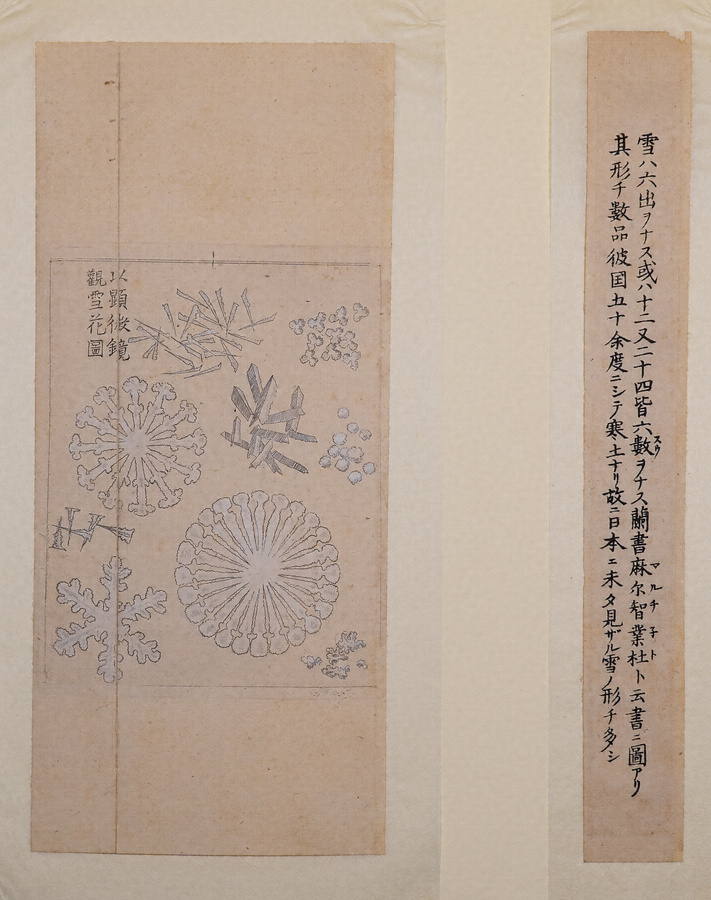 雪ハ六出ヲナス或ハ十二又二十四皆六數ヲナス蘭書麻尓智業杜ト云書ニ圖アリ
スウ
マルチ子ト
其形チ數品彼国五十余度ニシテ寒土ナリ故ニ日本ニ未タ見ザル雪ノ形チ多シ
以顕微鏡
觀雪花圖